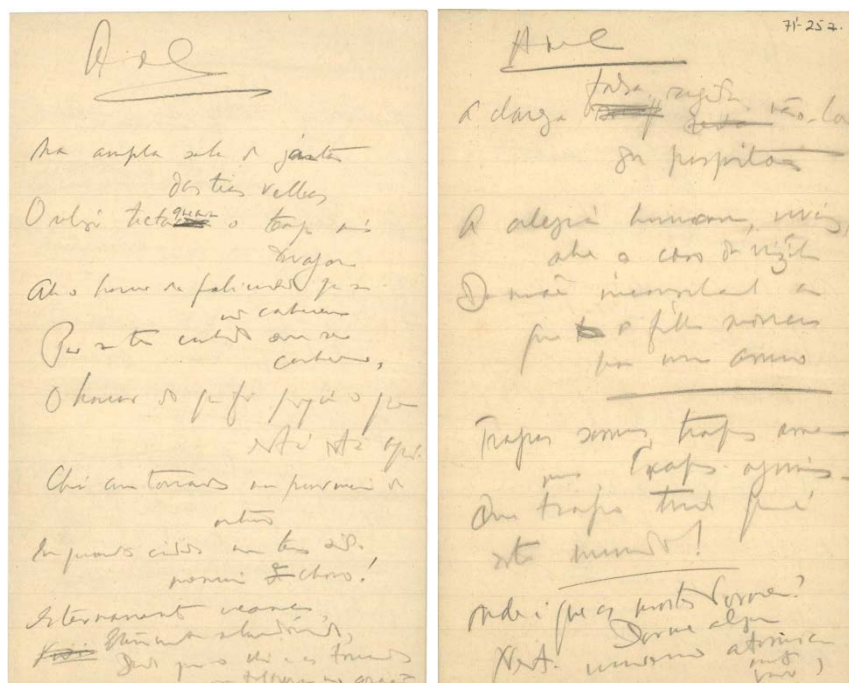 A. de C.
Na ampla sala de jantar
das tias velhas
O relogio tictaqueava o tempo mais
devagar
Ah o horror da felicidade que se
não conheceu
Por se ter conhecido sem se
conhecer,
O horror do que foi porque o que
está está aqui.
Chá com torradas na provincia de
outrora
Em quantas cidades me tens sido
memoria e choro!
Eternamente creança,
Eternamente abandonado,
Desde que o chá e as torradas
me faltaram no coração
71-257.
A. de C.
A clareza falsa, rigida, não-lar
dos hospitaes
A alegria humana, vivaz,
sobre o caso da vizinha
Da mãe inconsolavel a
que o filho morreu
ha um anno
Trapos somos, trapos ama-
mos, trapos agimos -
Que trapo tudo que é
este mundo!
Onde é que os mortos dormem?
Dorme alguem
Neste universo atomica
mente
falso?